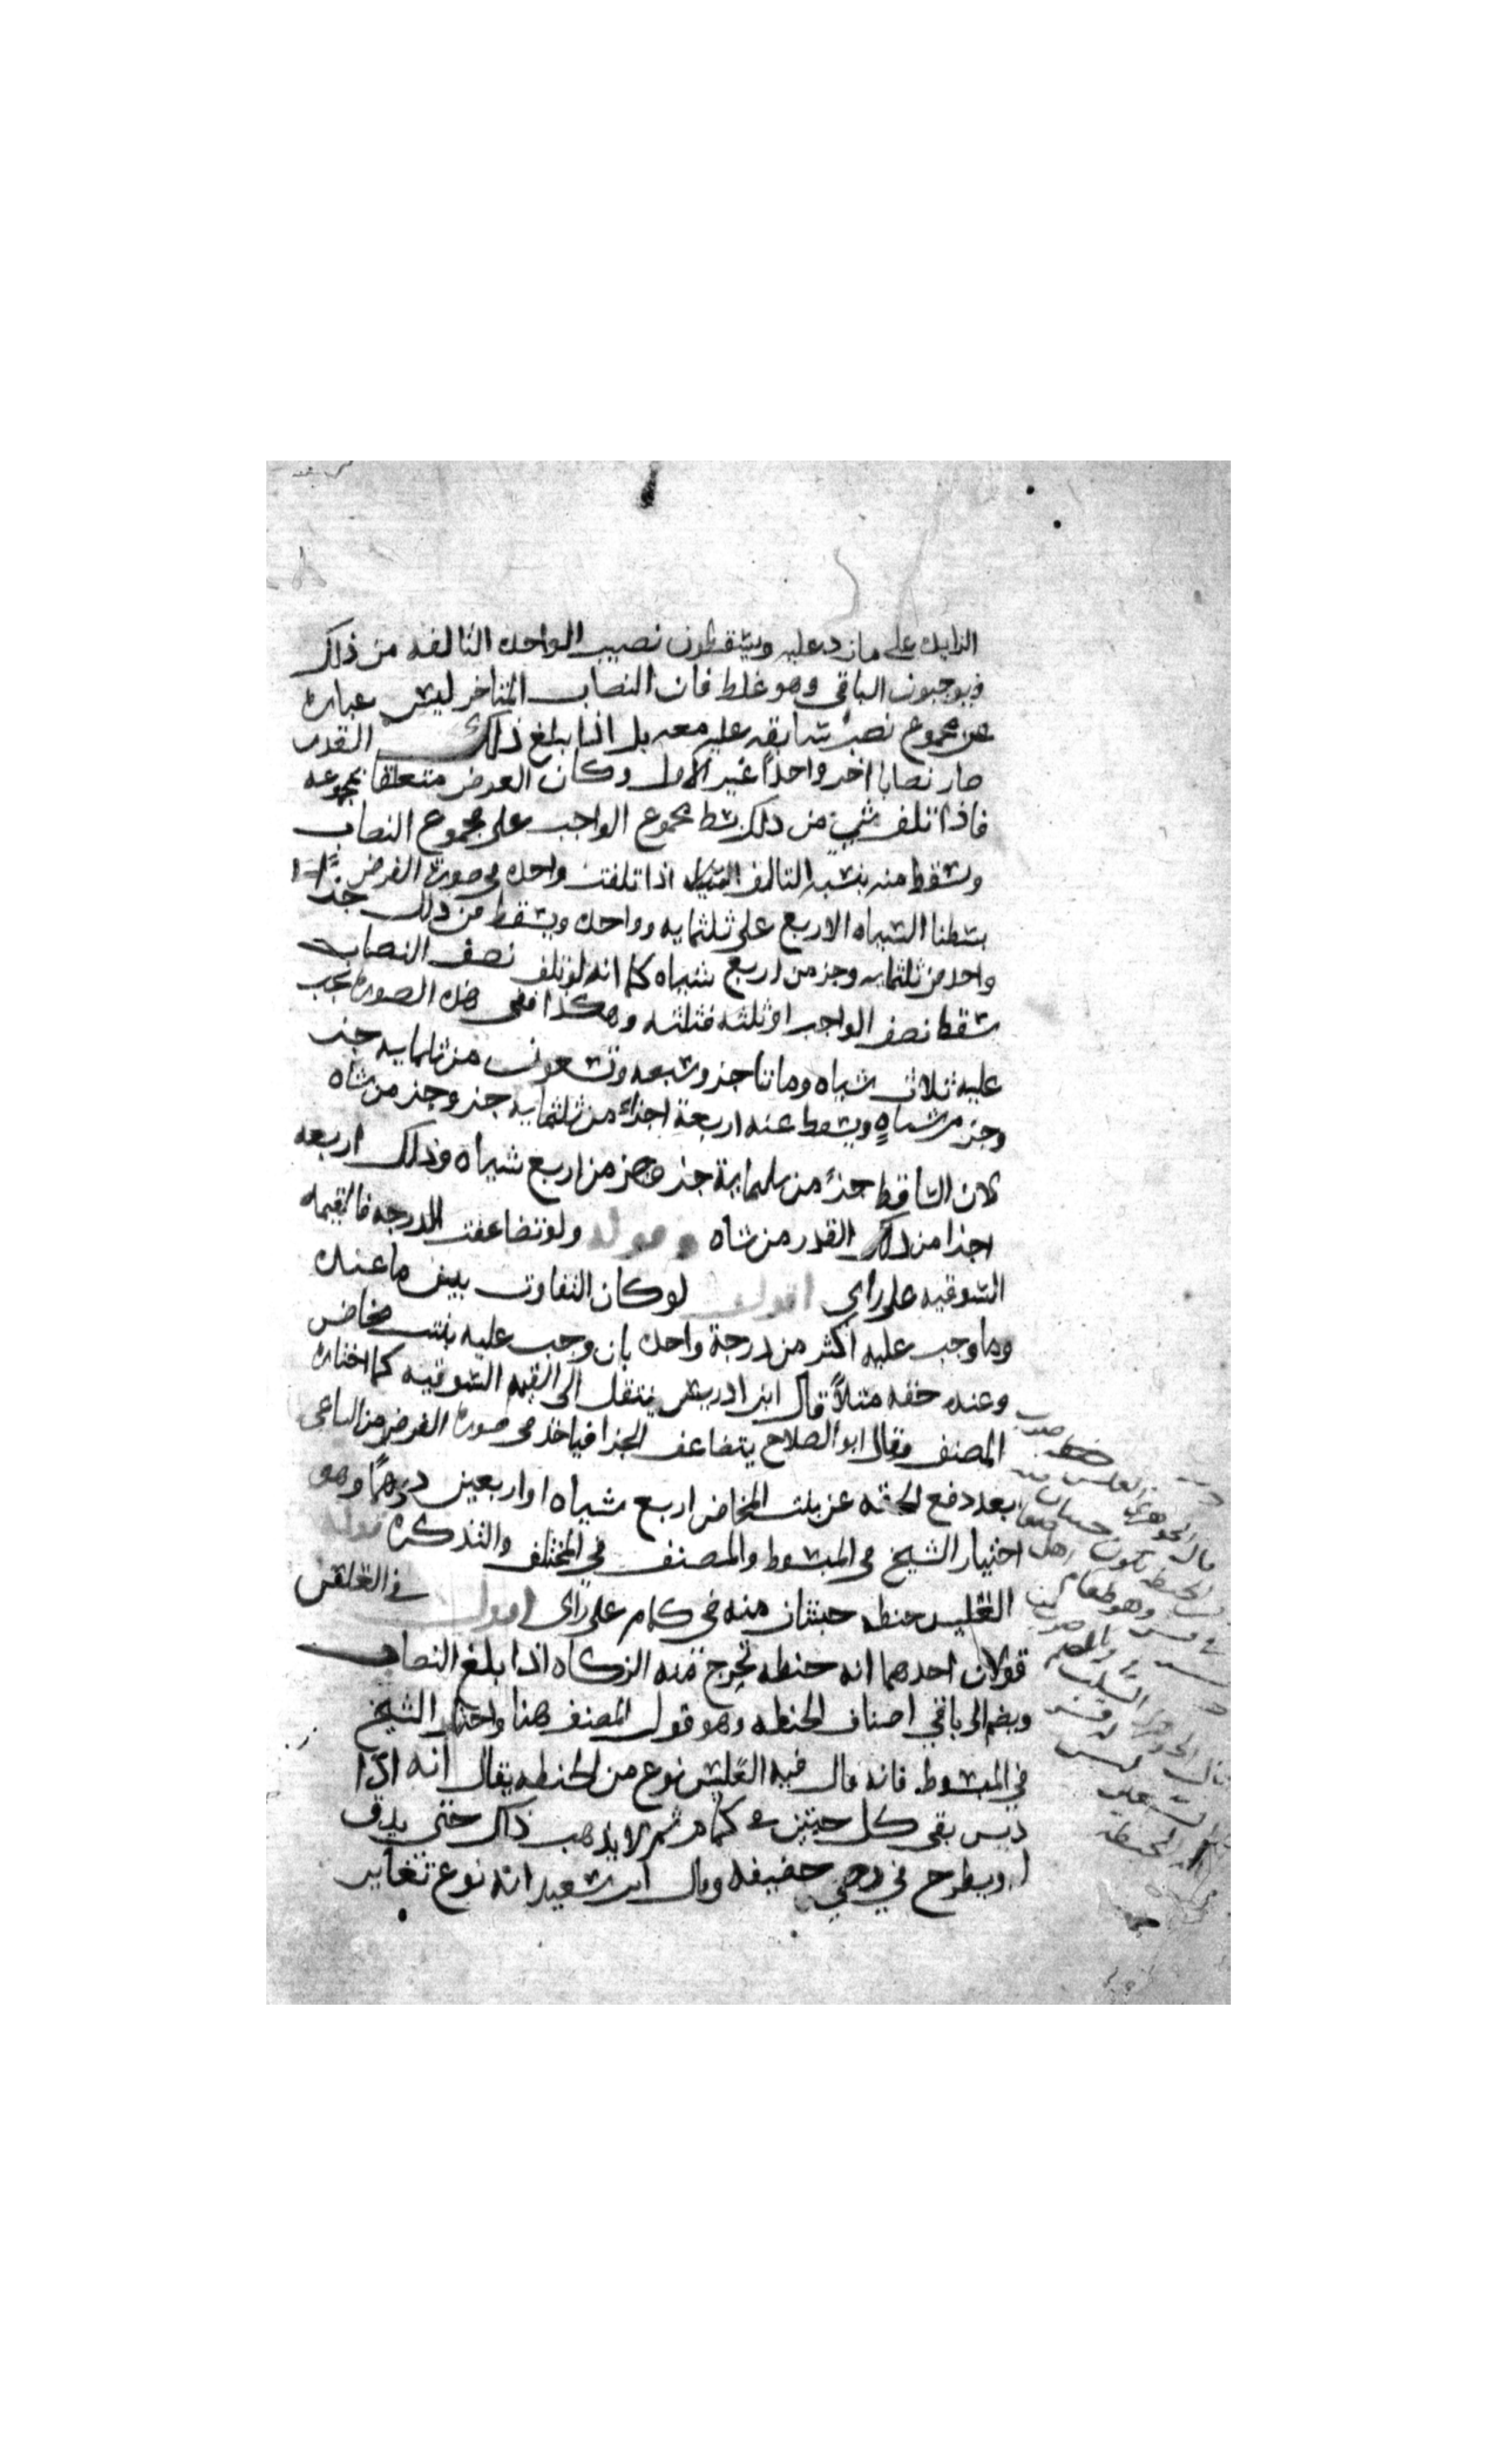 الزايده على ما زد عليه ويسقطون نصيب الواحده التالفه من ذلك
فيوجبون الباقي وهو غلط فان النصاب المتاخر ليس عباره
عن مجموع نصب سابقه عليه معه بل اذا بلغ ذلك القدر
صار نصابا اخر واحداً غير الاول وكان العرض متعلقا بمجموعه
فاذا تلف شي من ذلك بسط مجموع الواجب على مجموع النصاب
وسقط منه بنسبه التالف اذا تلفت واحده في صورة الفرض
بسطنا الشياه الاربع على ثلثمايه وواحده ويسقط من ذلك جزا
واحد من ثلثمايه وجز من اربع شياه كما انه لو تلف نصف النصاب
سقط نصف الواجب او ثلثه فثلثه وهكذا ففي هذه الصورة يجب
عليه ثلاث شياه وماتا جز وسبعه وتسعون من ثلثمايه جز
وجز من شاةٍ ويسقط عنه اربعة اجزاء من ثلثمايه جز وجز من شاه
لان الساقط جزء من ثلثماية جز وجز من اربع شياه وذلك اربعه
اجزا من ذلك القدر من شاه قوله ولو تضاعفت الدرجه فالقيمه
السوقيه على راي اقول لو كان التفاوت بين ما عنده
وما وجب عليه اكثر من درجة واحده بان وجب عليه بنت مخاض
وعنده حقه مثلاً قال ابن ادريس ينتقل الى القيمه السوقيه كما اختاره
المصنف وقال ابو الصلاح يتضاعف الجزا فياخذ في صورة الفرض من الساعي
بعد دفع الحقه عن بنت المخاض اربع شياه او اربعين درهماً وهو
اختيار الشيخ في المبسوط والمصنف في المختلف والتذكره قوله
العليس حنطه حبتان منه في كمام على راي اقول في العلس
قولان احدهما انه حنطه تخرج منه الزكاه اذا بلغ النصاب
ويضم الى باقي اصناف الحنطه وهو قول المصنف هنا واختاره الشيخ
في المبسوط فانه قال فيه العليس نوع من الحنطه يقال انه اذا
ديس بقى كل حبتين في كمام ثم لا يذهب ذلك حتى يدق
او يطرح في رحى خفيفه وقال ابن سعيد انه نوع تغاير
قال الجوهري العلس
الحنطه تكون حبتان
وهو طعام اهل صنعا
قال الجوهري السلت
الحنطه